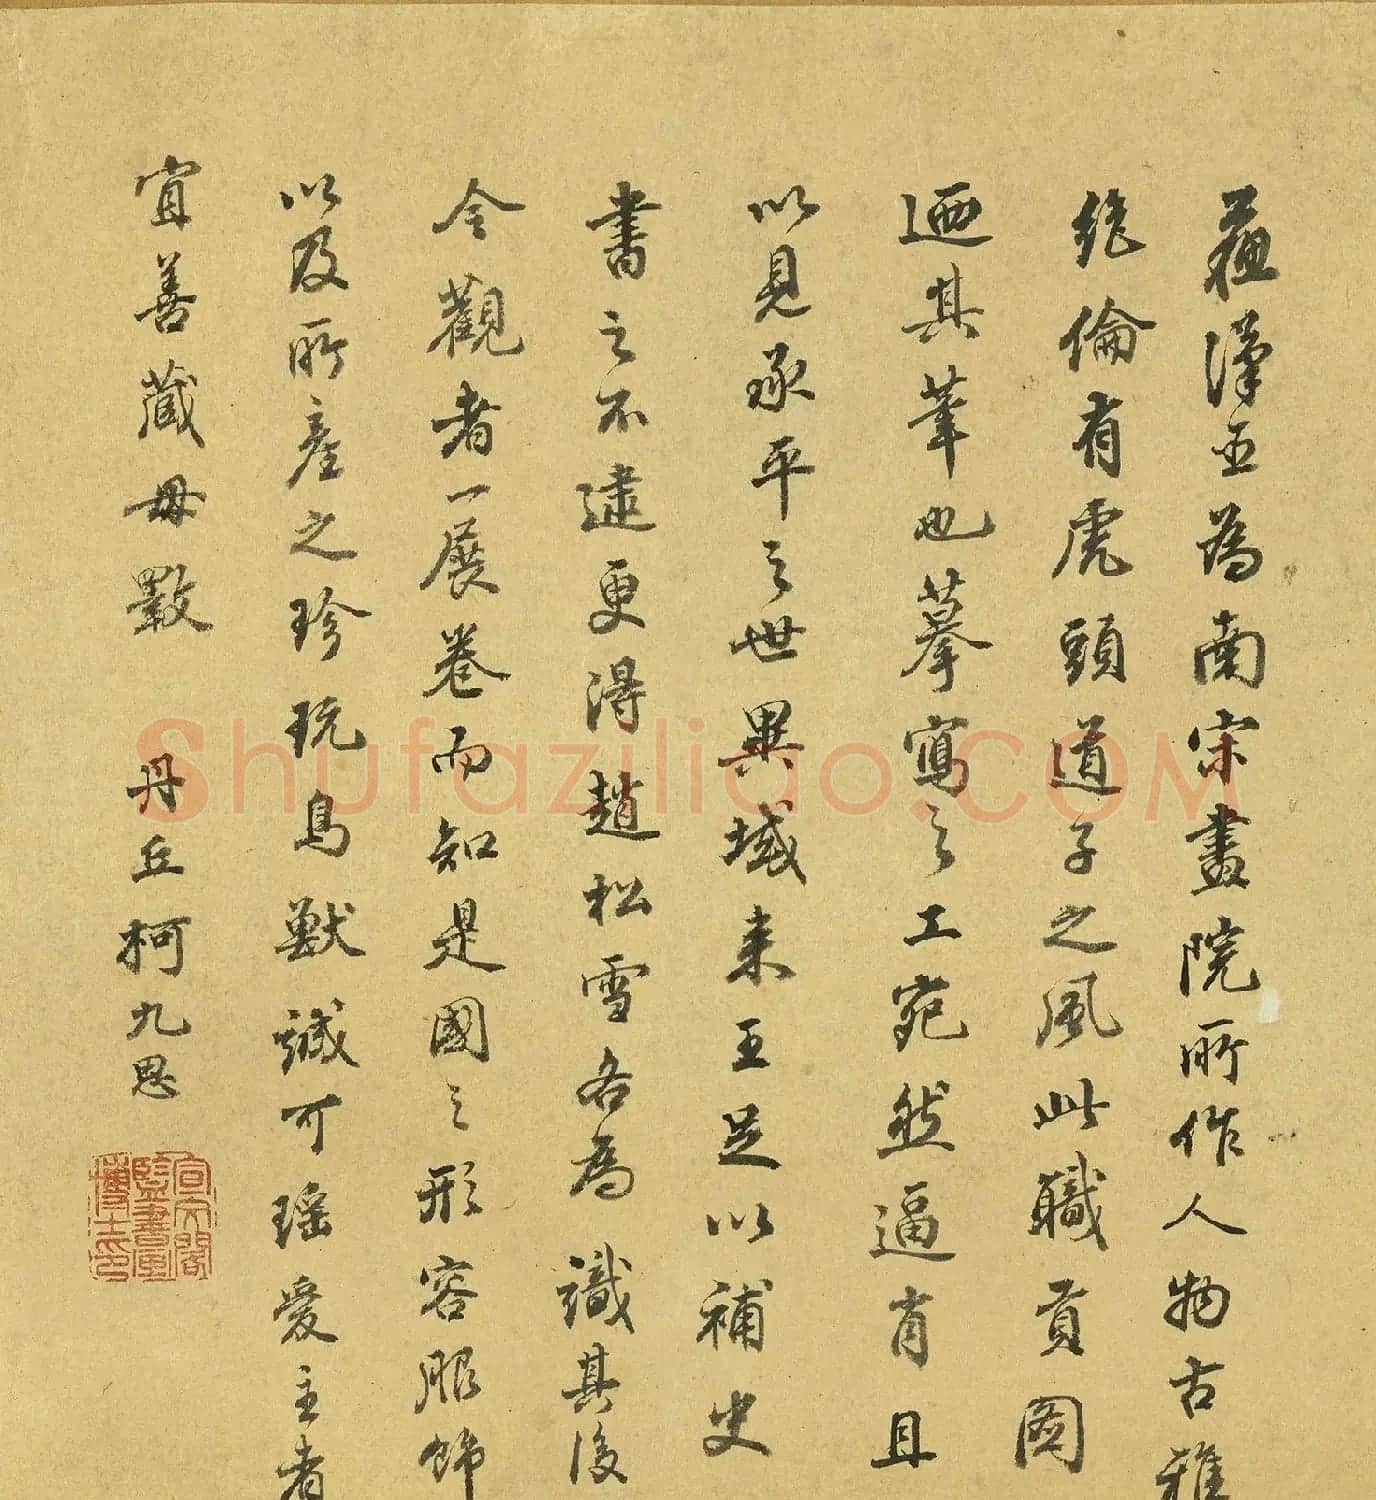 蘇漢臣為南宋畫院所作人物古雅
絕倫有虎頭道子之風此職貢圖
迺其筆也摹寫之工宛然逼肖且
以見承平之世異域来王足以補史
書之不逮更得趙松雪各為識其後
令觀者一展卷而知是國之形容服飾
以及所產之珍玩鳥獸誠可瑶愛主者
宜善藏毋斁 丹丘柯九思
宣文閣
監書畫
博士印
Shufaziliao.COM